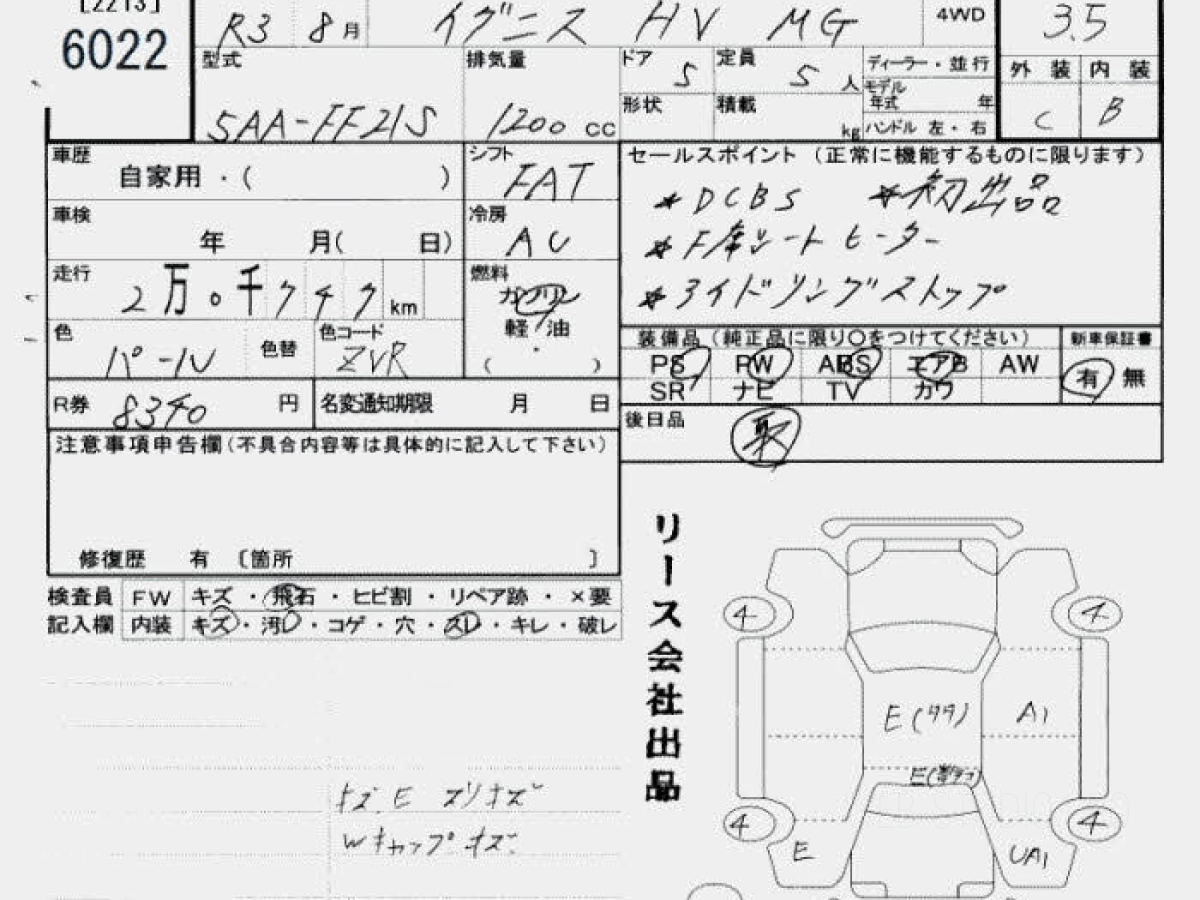 [2213]
6022
R3 8月 イグニス HV MG 4WD 3.5
型式 5AA-FF21S
排気量 1200 cc
ドア 5 定員 5人
形状 積載 kg
ディーラー・並行
モデル年式 年
ハンドル 左・右
外装 内装
C B
車歴 自家用・( )
シフト FAT
車検 年 月( 日)
冷房 AC
走行 2万0千747km
燃料 ガソリン
軽油
( )
色 パール 色替 色コード ZVR
R券 8340円 名変通知期限 月 日
セールスポイント(正常に機能するものに限ります)
*DCBS *初出品
*F席シートヒーター
*アイドリングストップ
装備品(純正品に限り〇をつけてください) 新車保証書
PS PW ABS エアB AW 有 無
SR ナビ TV カワ
後日品 取
注意事項申告欄(不具合内容等は具体的に記入して下さい)
修復歴 有 〔箇所 〕
検査員 FW キズ・飛石・ヒビ割・リペア跡・×要
記入欄 内装 キズ・汚レ・コゲ・穴・スレ・キレ・破レ
リース会社出品
4 4
E(タタ) A1
4 4
E UA1
キズ.E スリキズ
Wキャップキズ